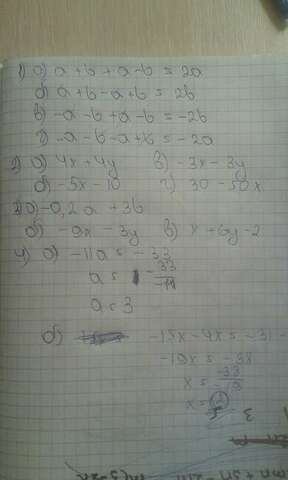 1) а) a + b + a - b = 2a
б) a + b - a + b = 2b
в) -a - b + a - b = -2b
г) -a - b - a + b = -2a
2) а) 4x + 4y в) -3x - 3y
б) -5x - 10 г) 30 - 50x
3) а) -0,2a + 3b
б) -9x - 3y в) x + 6y - 2
4) а) -11a = -33
a = -33/-11
a = 3
б) -15x - 4x = -31 -
x =
x =
3